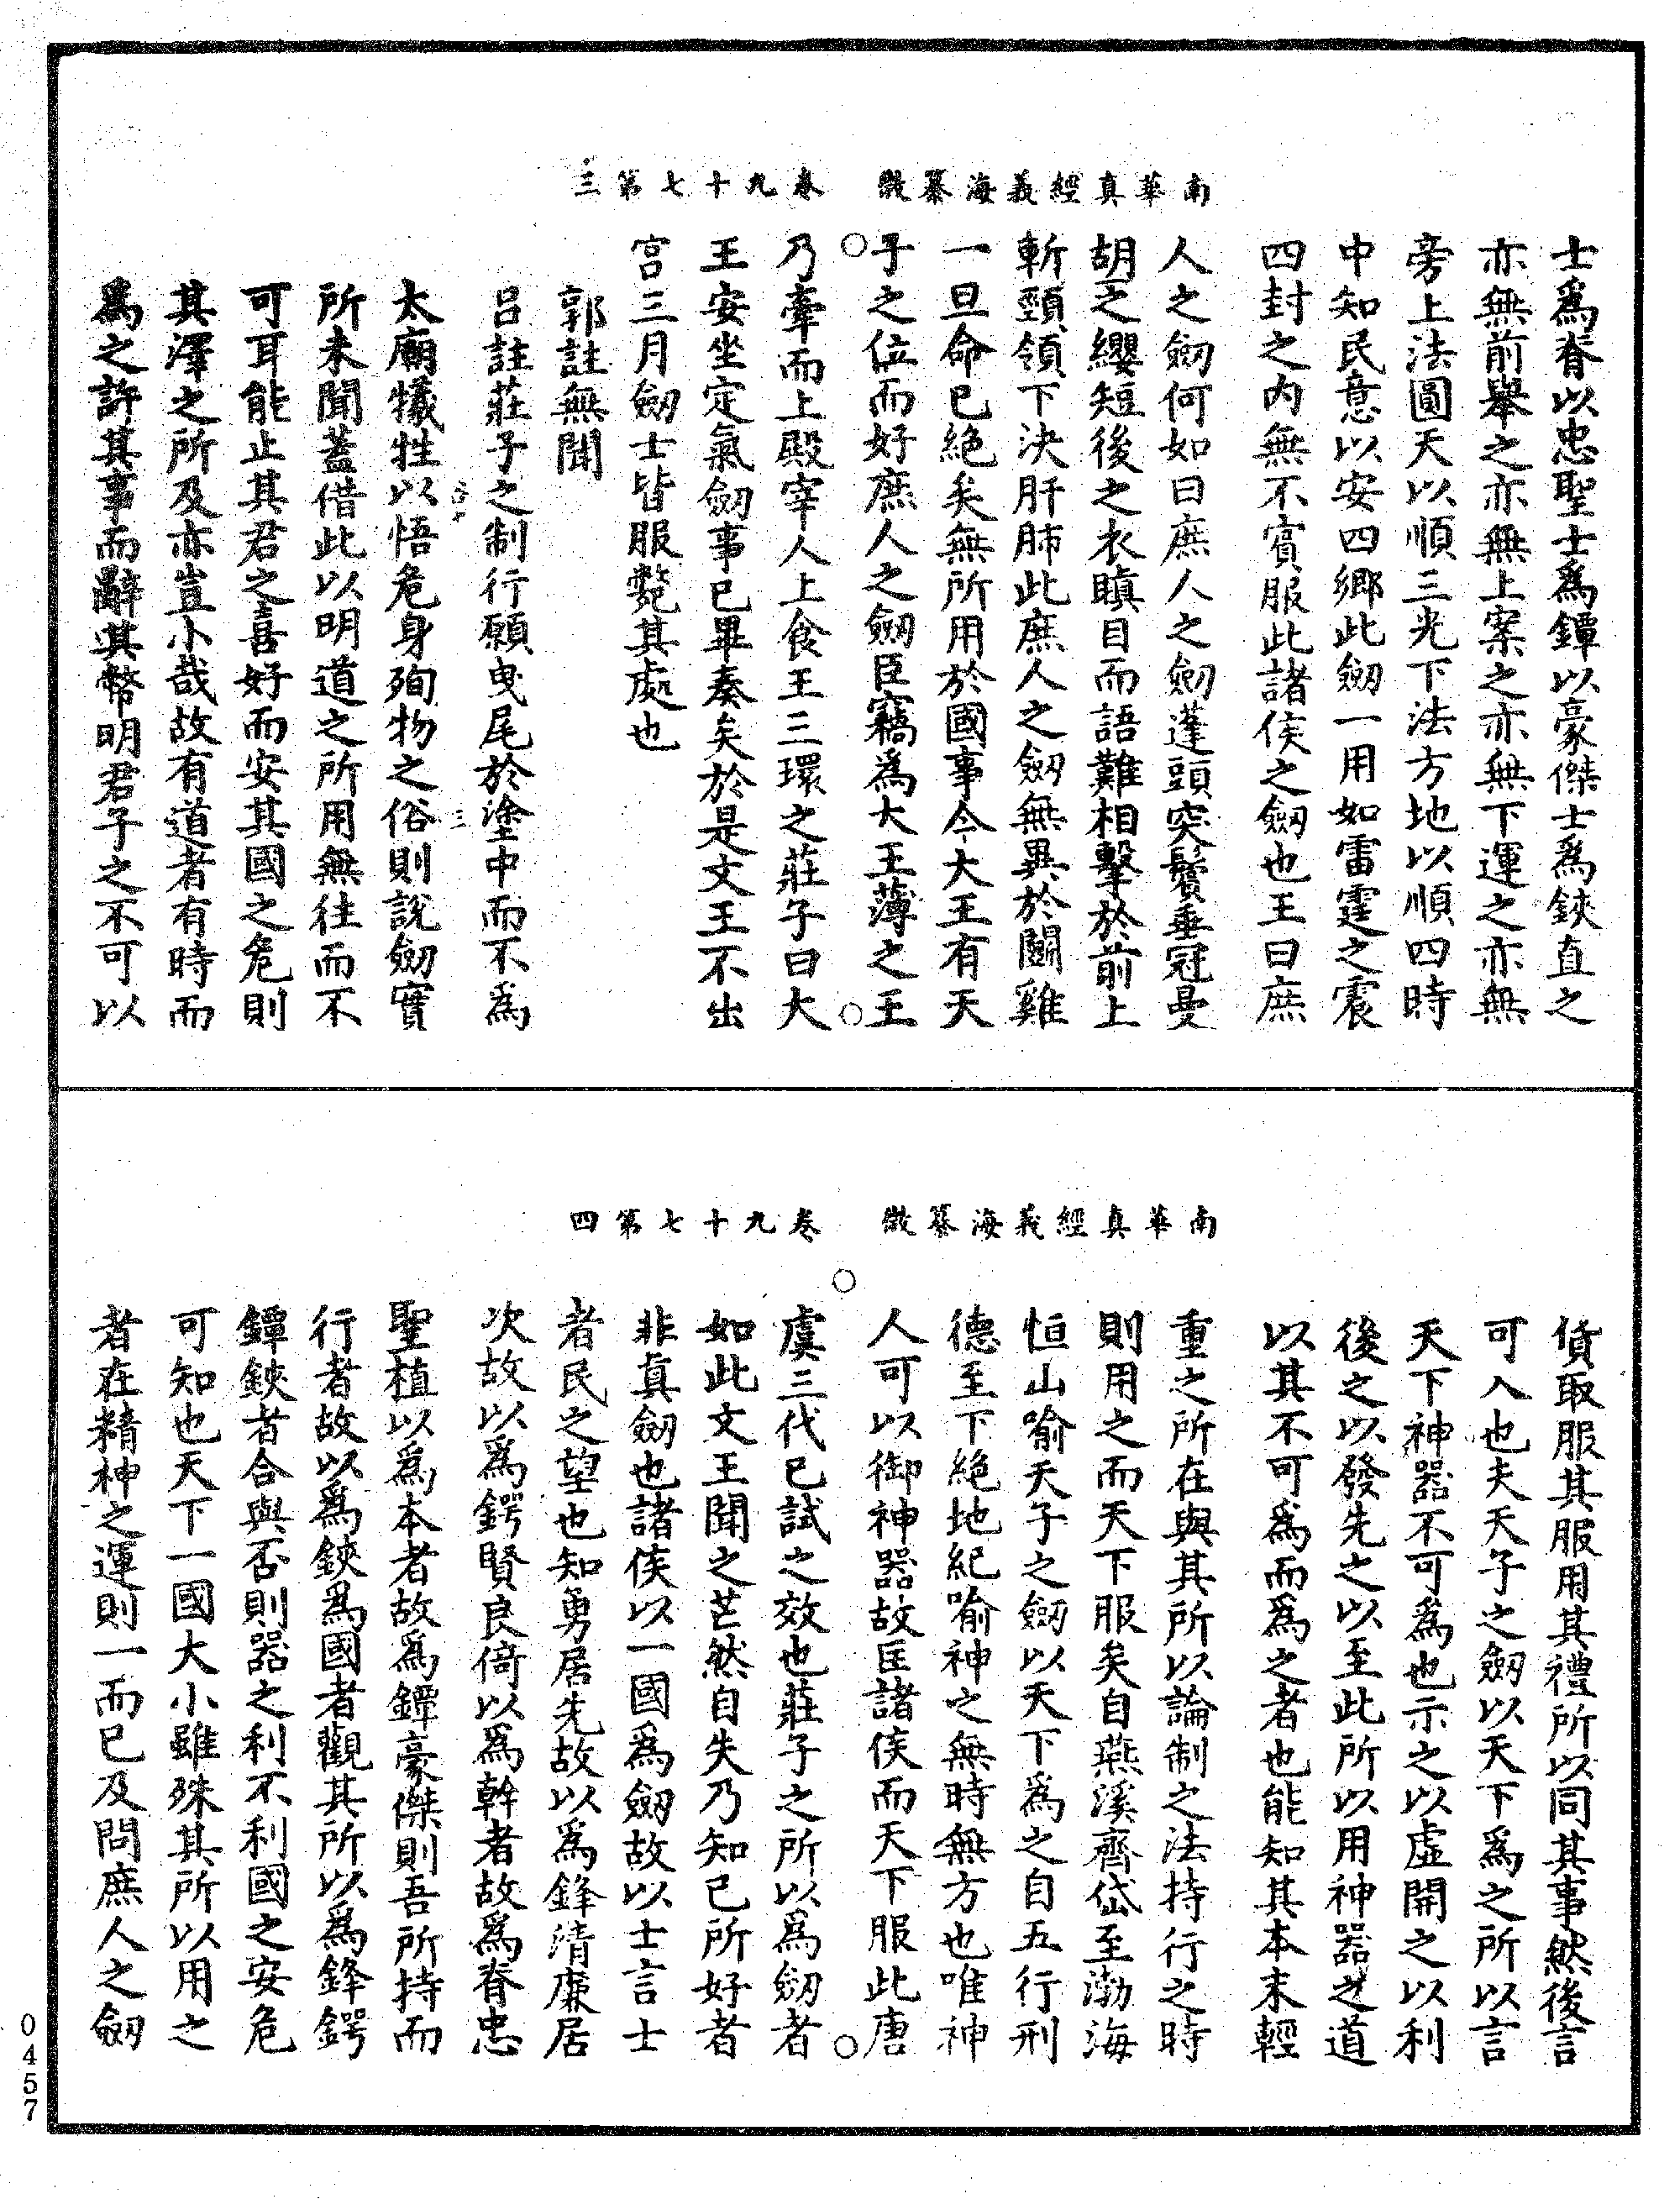 南華真經義海纂微　卷九十七第三
士爲脊以忠聖士爲鐔以豪傑士爲鋏直之
亦無前舉之亦無上案之亦無下運之亦無
旁上法圓天以順三光下法方地以順四時
中知民意以安四鄉此劒一用如雷霆之震
四封之内無不賓服此諸侯之劒也王曰庶
人之劒何如曰庶人之劒蓬頭突鬢垂冠曼
胡之纓短後之衣瞋目而語難相擊於前上
斬頸領下決肝肺此庶人之劒無異於鬭雞
一旦命已絶矣無所用於國事今大王有天
子之位而好庶人之劒臣竊爲大王薄之王
乃牽而上殿宰人上食王三環之莊子曰大
王安坐定氣劒事已畢奏矣於是文王不出
宫三月劒士皆服斃其處也
郭註無聞
吕註莊子之制行願曳尾於塗中而不爲
太廟犧牲以悟危身殉物之俗則說劒實
所未聞蓋借此以明道之所用無往而不
可耳能止其君之喜好而安其國之危則
其澤之所及亦豈小哉故有道者有時而
爲之許其事而辭其幣明君子之不可以
南華真經義海纂微　卷九十七第四
貨取服其服用其禮所以同其事然後言
可入也夫天子之劒以天下爲之所以言
天下神器不可爲也示之以虚開之以利
後之以發先之以至此所以用神器之道
以其不可爲而爲之者也能知其本末輕
重之所在與其所以論制之法持行之時
則用之而天下服矣自燕溪齊岱至渤海
恒山喻天子之劒以天下爲之自五行刑
德至下絶地紀喻神之無時無方也唯神
人可以御神器故匡諸侯而天下服此唐
虞三代已試之效也莊子之所以爲劒者
如此文王聞之芒然自失乃知已所好者
非真劒也諸侯以一國爲劒故以士言士
者民之望也知勇居先故以爲鋒清廉居
次故以爲鍔賢良倚以爲幹者故爲脊忠
聖植以爲本者故爲鐔豪傑則吾所持而
行者故以爲鋏爲國者觀其所以爲鋒鍔
鐔鋏者合與否則器之利不利國之安危
可知也天下一國大小雖殊其所以用之
者在精神之運則一而已及問庶人之劒
0457